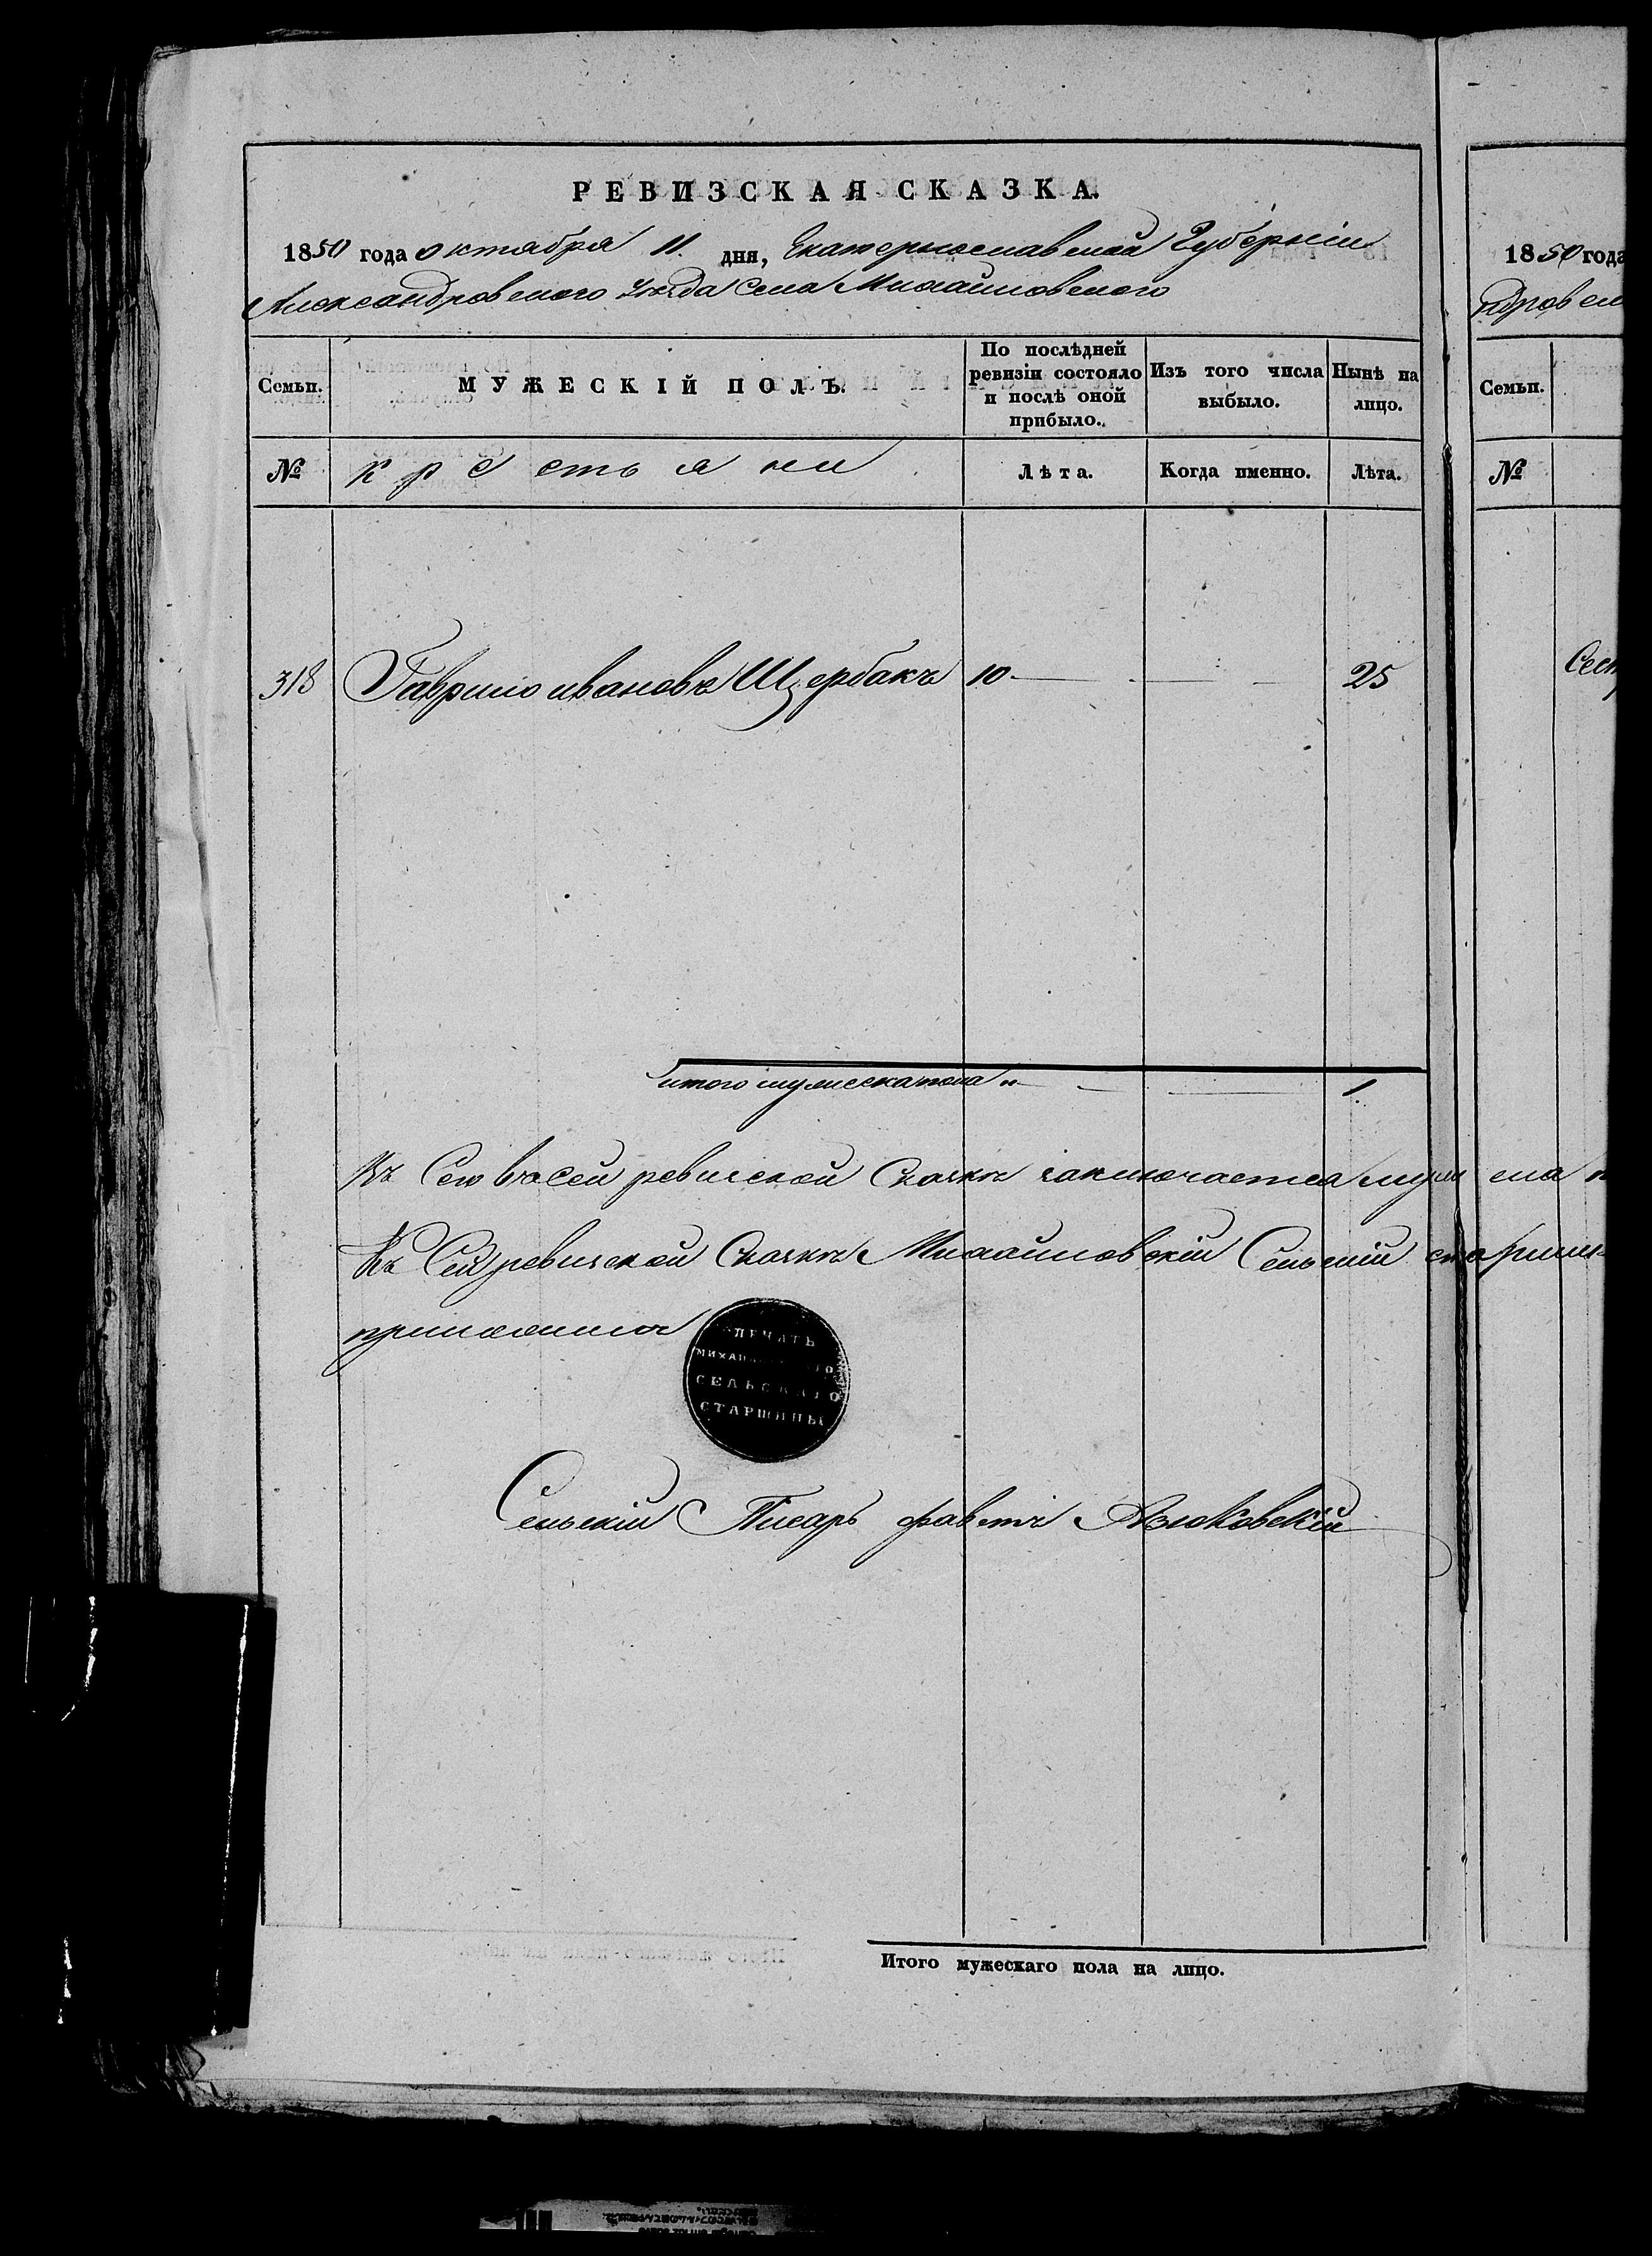 РЕВИЗСКАЯ СКАЗКА.
1850 года октября 11. дня, Екатеринославской Губерніи
Александровского Уезда Села Михайловского
Семьи.
МУЖЕСКІЙ ПОЛЪ.
По послѣдней ревизіи состояло и послѣ оной прибыло.
Изъ того числа выбыло.
Нынѣ на лицо.
№
крестьяни
Лѣта.
Когда именно.
Лѣта.
318 Гаврило ивановъ Щербакъ 10 25
итого мужеска пола " 1.
вСей ревизской Сказки заключается муж ска
Къ Сей ревизской Сказки Михайловскій Сельскій старшина
приложилъ
ПЕЧАТЬ
МИХАЙ ГО
СЕЛЬСКАГО
СТАРШИНЫ
Сельскій Писарь
Итого мужескаго пола на лицо.
1850 года
ндров
Семьи.
№
Сест